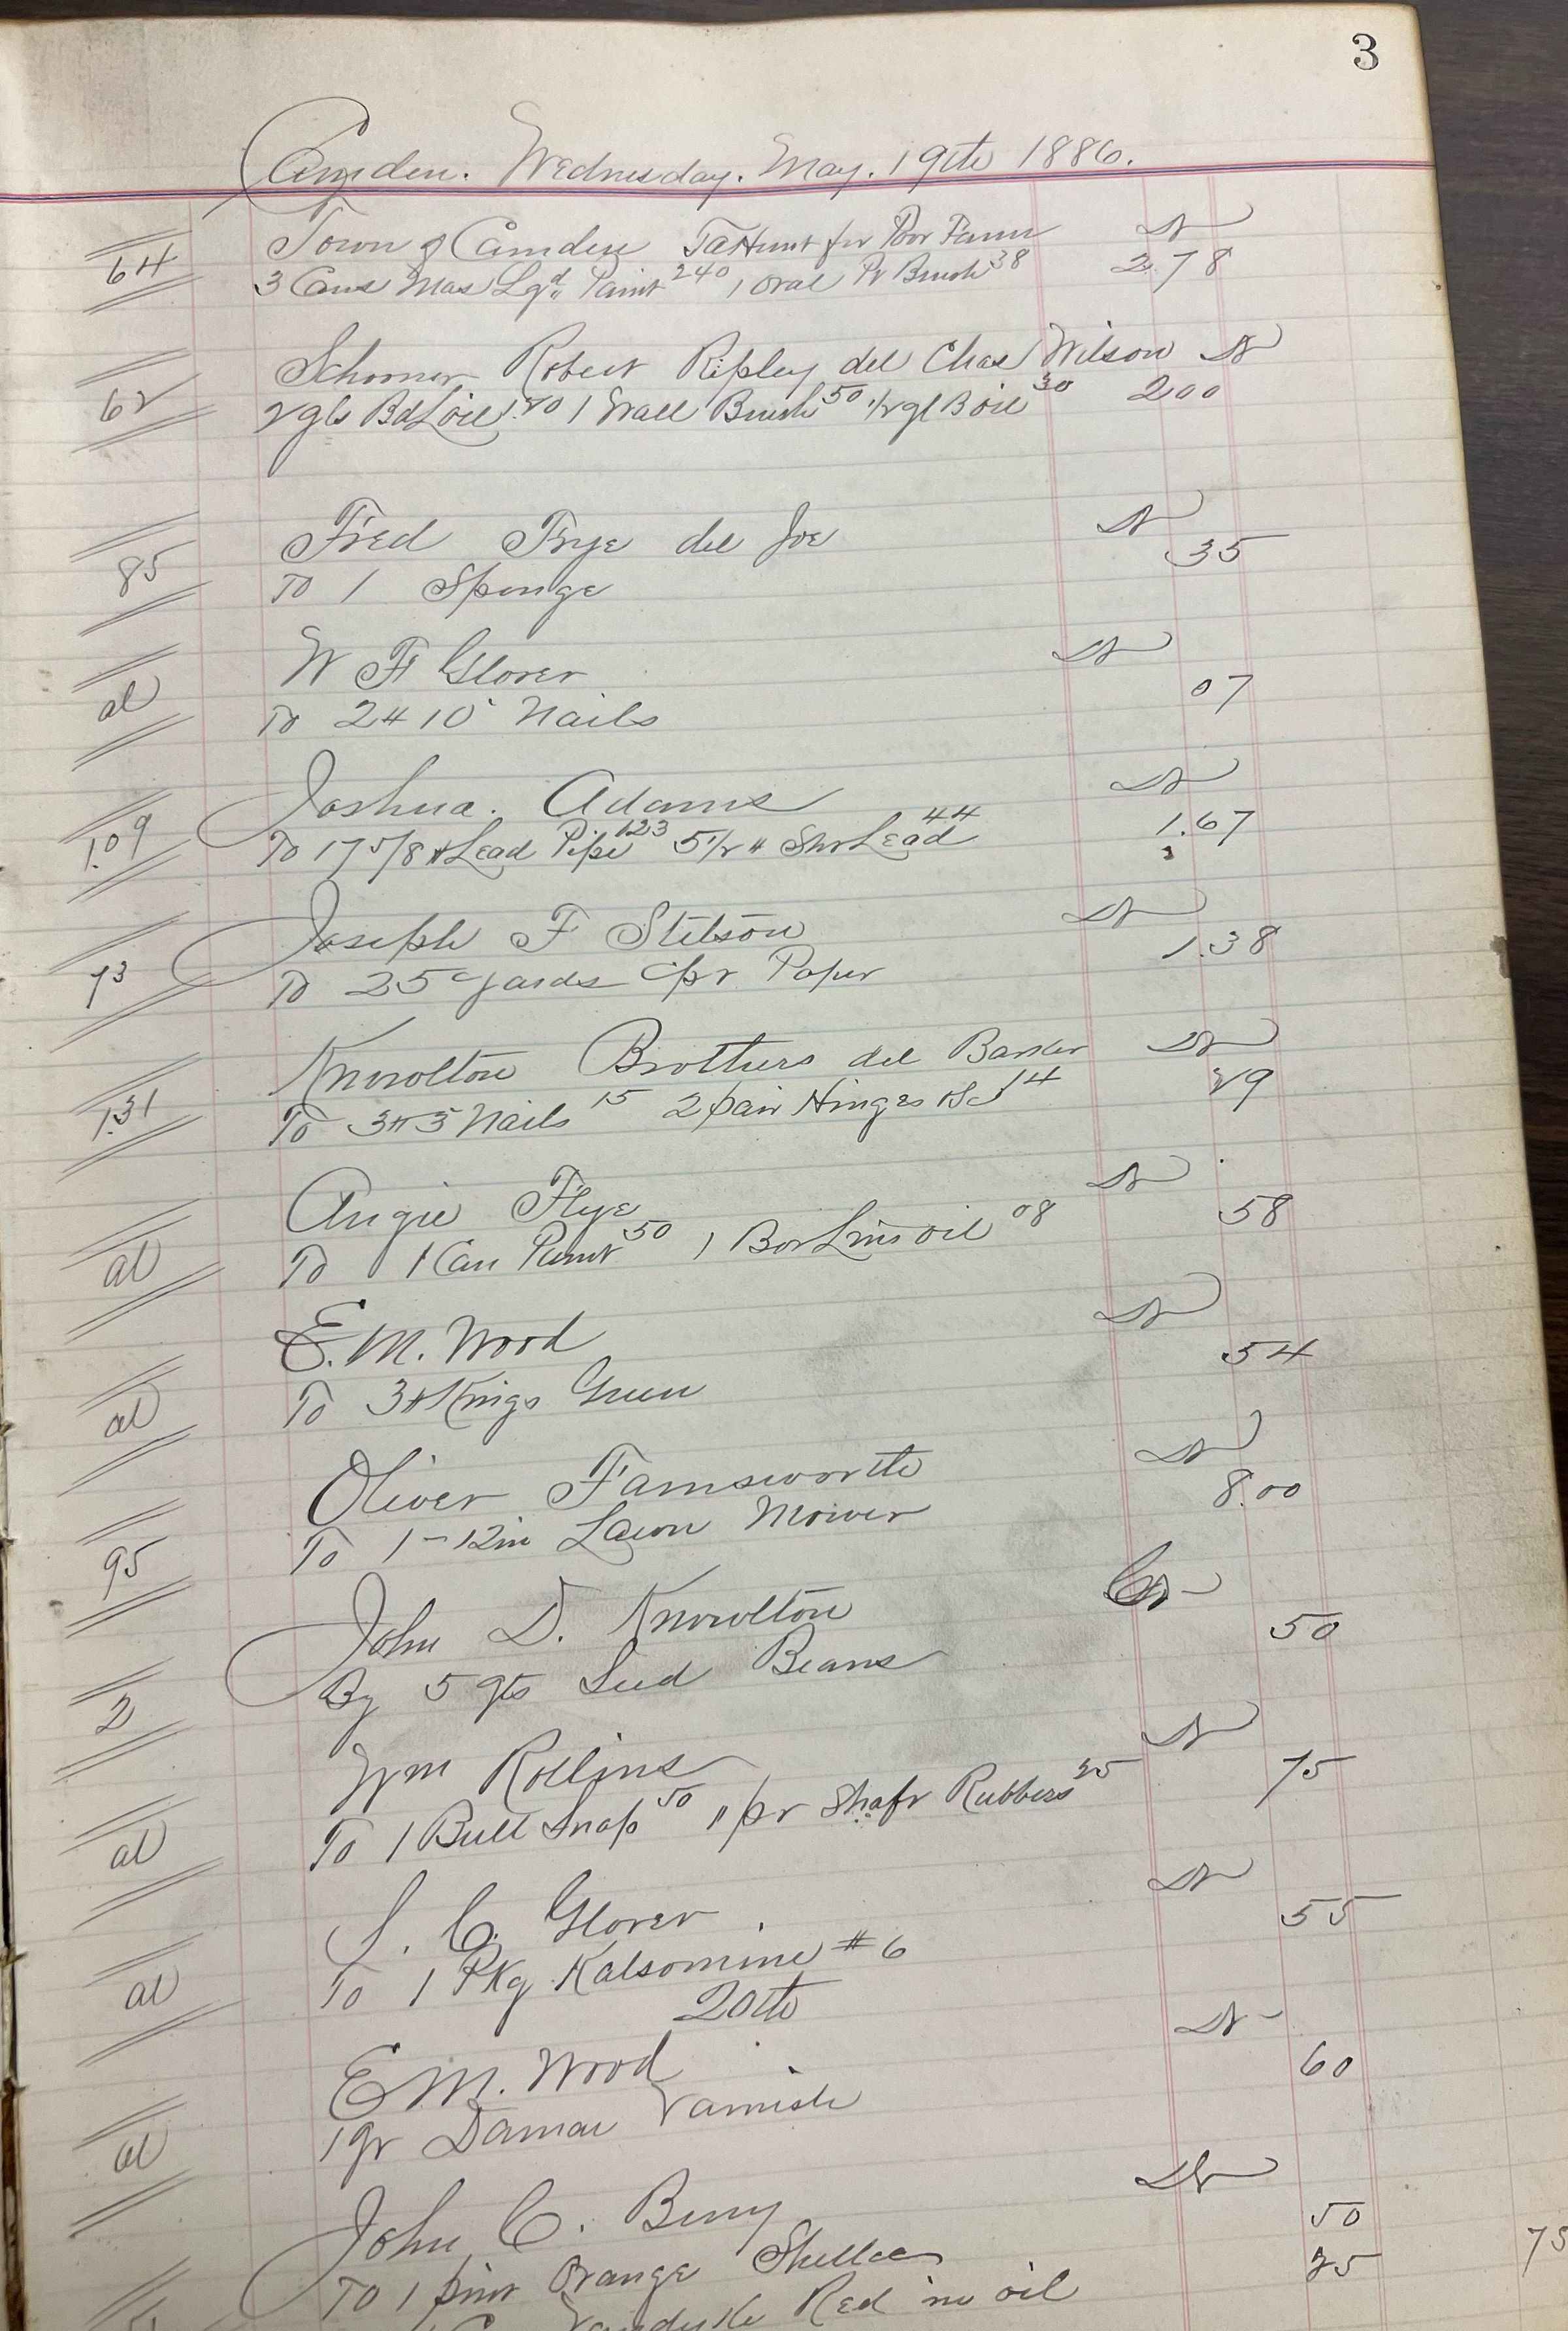 3
Camden. Wednesday. May. 19th 1886.
Town of Camden for Poor Farm Dr
64 3 Cans Mas Lqd Paint 240 1 Oval Pt Brush 38 2 78
Schooner Robert Ripley del Chas Wilson Dr
62 2 gls Bd L oil 1.20 1 Wall Brush 50 1/2 gl B oil 30 2 00
Fred Frye del Joe Dr
85 To 1 Sponge 35
W F Glover Dr
al To 2# 10 Nails 07
Joshua. Adams Dr
1.09 To 17 5/8 # Lead Pipe 123 5 1/2 # Sht Lead 44 1.67
Joseph F Stetson Dr
73 To 25 yards cpr Paper 1.38
Knowlton Brothers del Dr
1.31 To 3# 3 Nails 15 2 pair Hinges 14 29
Angie Flye Dr
al To 1 Can Paint 50 1 Bot Lins oil 08 58
E. M. Wood Dr
al To 3# Kings Green 54
Oliver Farnsworth Dr
95 To 1 - 12 in Lawn Mower 8.00
John D. Knowlton Cr
2 By 5 qts Seed Beans 50
Wm Rollins Dr
al To 1 Bull Snap 50 1 pr Shaft Rubbers 25 75
S. C. Glover Dr
al To 1 Pkg Kalsomine #6 55
20th
E M. Wood Dr
al 1 qt Damar Varnish 60
John C. Berry Dr
To 1 pint Orange Shellac 50
Vandyke Red in oil 25 75